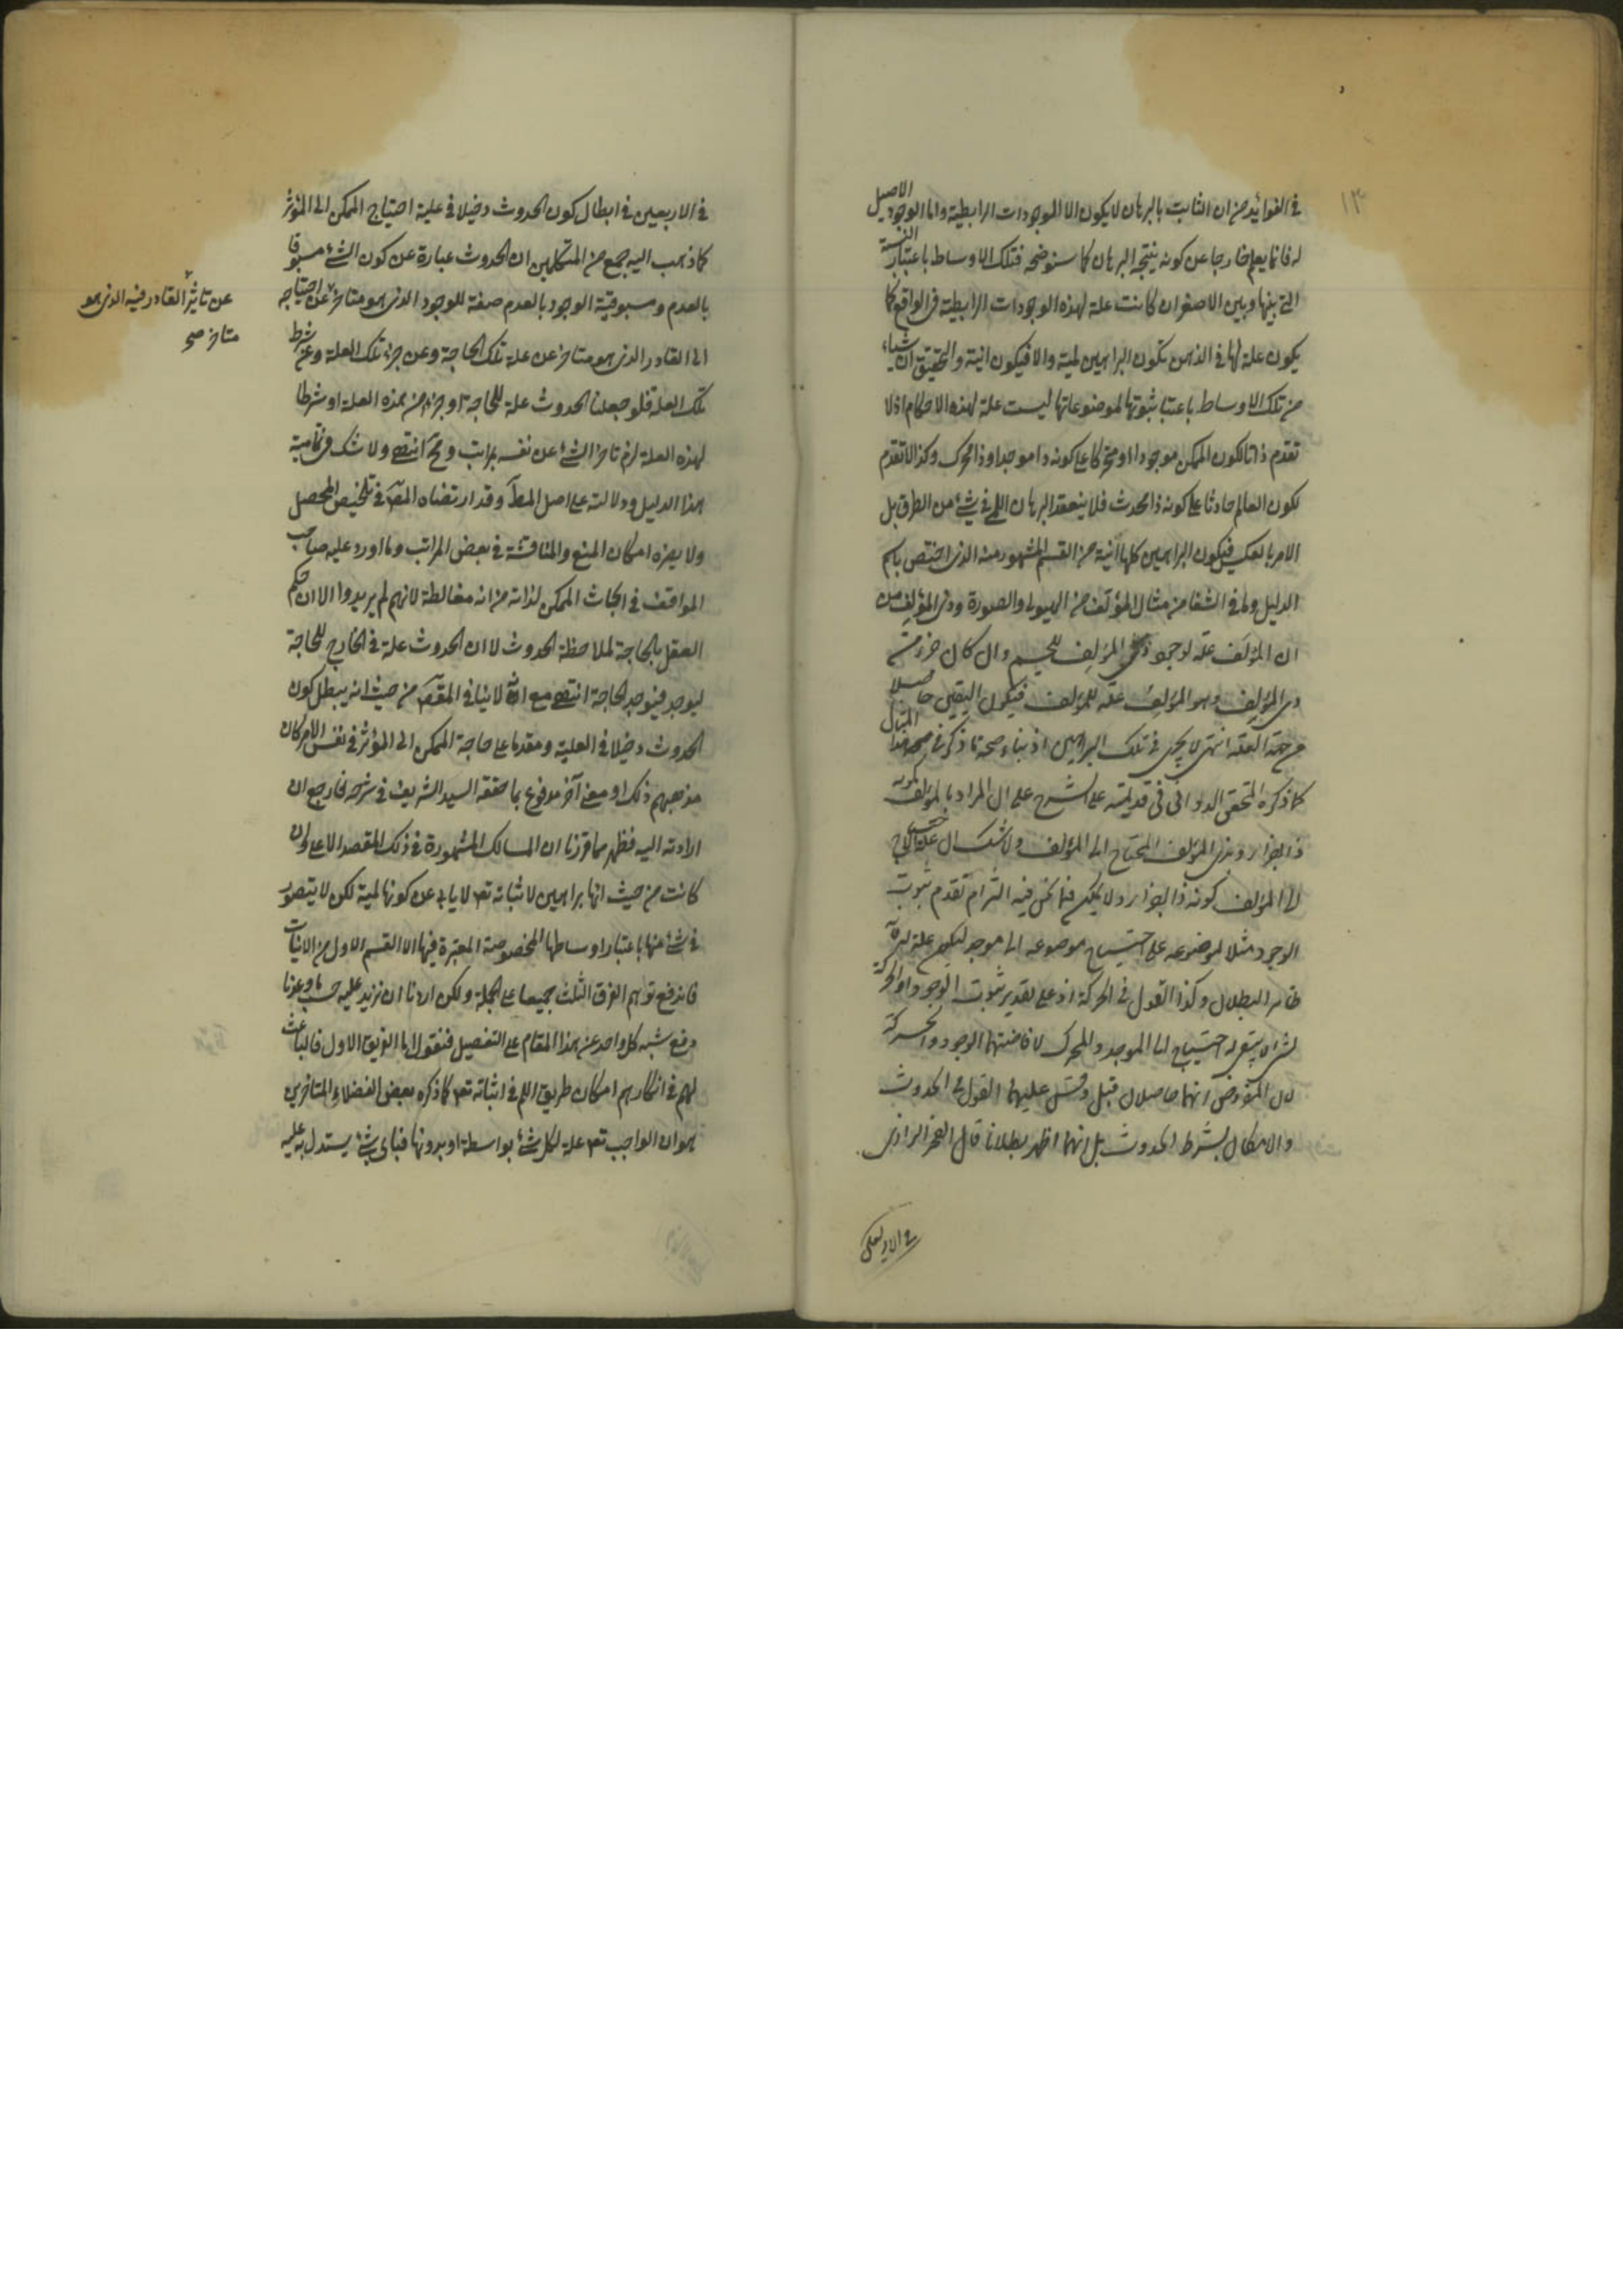 ١٣
في الفوائد من ان الثابت بالبرهان لا يكون الا الموجودات الرابطية واما الوجود الاصيل
له فانما يعلم خارجا عن كونه نتيجة البرهان كما سنوضحه فتلك الاوساط باعتبار النسبة
التي بينها وبين الاصغر ان كانت علة لهذه الوجودات الرابطية في الواقع كما
يكون علة لها في الذهن تكون البراهين لمية والا فيكون انية والتحقيق ان شيئا
من تلك الاوساط باعتبار ثبوتها لموضوعاتها ليست علة لهذه الاحكام اذ لا
تقدم ذاتا لكون الممكن موجودا او متحركا على كونه ذا موجد او ذا محرك وكذا لا تقدم
لكون العالم حادثا على كونه ذا محدث فلا ينعقد البرهان اللمي في شيء من الطرق بل
الامر بالعكس فيكون البراهين كلها انية من القسم المشهور منه الذي اختص باسم
الدليل وما في الشفا من مثال المؤلف من الهيولى والصورة وذي المؤلف من
ان المؤلف علة لوجود ذي المؤلف للجسم وان كان جزء من
ذي المؤلف وهو المؤلف علة للمؤلف فيكون اليقين حاصلا
من جهة العلة انتهى لا يجري في تلك البراهين اذ بناء صحة ما ذكر في هذا المثال
كما ذكره المحقق الدواني في قديمته على الشرح على ان المراد بالمؤلف كونه
ذا اجزاء وبذي المؤلف المحتاج الى المؤلف ولا شك ان علة احتياج
الى المؤلف كونه ذا اجزاء ولا يمكن فيما نحن فيه التزام تقدم ثبوت
الوجود مثلا لموضوعه على احتياج موضوعه الى موجد ليكون علة له لانه
ظاهر البطلان وكذا القول في الحركة اذ على تقدير ثبوت الوجود او الحركة
لشيء لا يبقى له احتياج الى الموجد والمحرك لافاضتهما الوجود والحركة
لان المفروض انهما حاصلان قبل وقس عليهما القول في الحدوث
والامكان بشرط الحدوث بل انهما اظهر بطلانا قال الفخر الرازي
في الاربعين
في الاربعين في ابطال كون الحدوث دخيلا في علية احتياج الممكن الى المؤثر
كما ذهب اليه جمع من المتكلمين ان الحدوث عبارة عن كون الشئ مسبوقا
بالعدم ومسبوقية الوجود بالعدم صفة للوجود الذي هو متاخر عن احتياجه
عن تاثير القادر فيه الذي هو
متاخر صح
الى القادر الذي هو متاخر عن علة تلك الحاجة وعن جزء تلك العلة وعن شرط
تلك العلة فلو جعلنا الحدوث علة للحاجة او جزء من هذه العلة او شرطا
لهذه العلة لزم تاخر الشئ عن نفسه بمراتب وهو مح انتهى ولا شك في تمامية
هذا الدليل ودلالته على اصل المط وقد ارتضاه المص في تلخيص المحصل
ولا يضره امكان المنع والمناقشة في بعض المراتب وما اورد عليه صاحب
المواقف في ابحاث الممكن لذاته من انه مغالطة لانهم لم يريدوا الا ان حكم
العقل بالحاجة لملاحظة الحدوث لا ان الحدوث علة في الخارج للحاجة
ليوجد فيوجد الحاجة انتهى مع انه لا ينافي المقصود من حيث انه يبطل كون
الحدوث دخيلا في العلية ومقدما على حاجة الممكن الى المؤثر في نفس الامر كان
مذهبهم ذلك او معنى آخر مدفوع بما حققه السيد الشريف في شرحه فارجع ان
اردته اليه فظهر مما قررنا ان المسالك المشهورة في ذلك المقصد الاعلى وان
كانت من حيث انها براهين لاثباته تعم لا يابى عن كونها لمية لكن لا يتصور
في شئ منها باعتبار اوساطها المخصوصة المعتبرة فيها الا القسم الاول من الانيات
فاندفع توهم الفرق الثلث جميعا على الجملة ولكن اردنا ان نزيد عليه حسب ما وعدنا
دفع شبه كل واحد عن هذا المقام على التفصيل فنقول اما الفريق الاول فالباعث
لهم في انكارهم امكان طريق اللم في اثباته تعم كما ذكره بعض الفضلاء المتاخرين
هو ان الواجب تعم علة لكل شئ بواسطة او بدونها فباى شئ يستدل به عليه